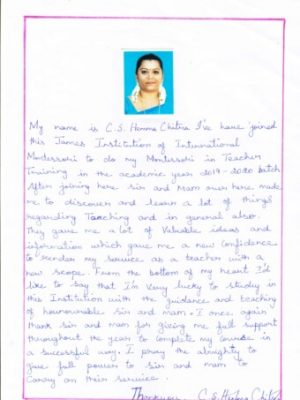 My name is C.S. Hemma Chitra I've have joined
this James Institution of International
Montessori to do my Montessori in Teacher
Training in the academic year 2019 - 2020 batch
After joining here sir and mam over here made
me to discover and learn a lot of things
regarding Teaching and in general also.
They gave me a lot of Valuable ideas and
information which gave me a new Confidence
to render my service as a teacher with a
new scope. From the bottom of my heart I'd
like to say that I'm very lucky to study in
this Institution with the guidance and teaching
of honourable sir and mam. I once again
thank sir and mam for giving me full support
throughout the year to complete my course in
a successful way. I pray the almighty to
give full powers to sir and mam to
Carry on their service.
Thankyou. C.S. Hemma Chitra